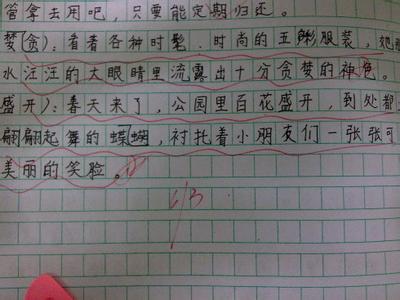 管拿去用吧，只要能定期归还。
梦(贪)：看看各种时髦、时尚的五彩服装，她
水汪汪的大眼睛里流露出十分贪梦的神色。
盛开)：春天来了，公园里百花盛开，到处都
翩翩起舞的蝶蝴，衬托着小朋友们一张张可
美丽的笑脸。